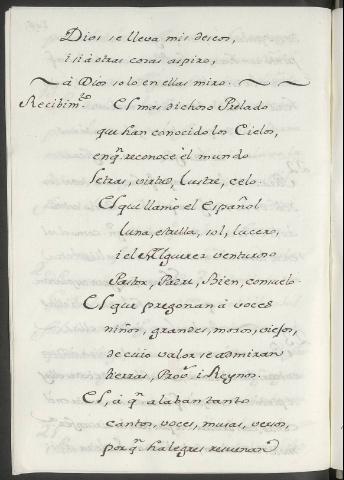 Dios se lleva mis deseos,
i si à otras cosas aspiro,
à Dios solo en ellas miro.
Recibim.to El mas dichoso Prelado
que han conocido los Cielos,
en q.n reconoce el mundo
letras, virtud, lustre, celo.
El que llamò el Español
luna, estrella, sol, lucero,
i el Alguerez venturoso
Pastor, Padre, Bien, consuelo.
El que pregonan à voces
niños, grandes, mozos, viejos,
de cuio valor se admiran
tierras, Prov.s i Reynos.
El, à q.n alaban tanto
cantos, voces, musas, versos,
por q.n halegres resuenan